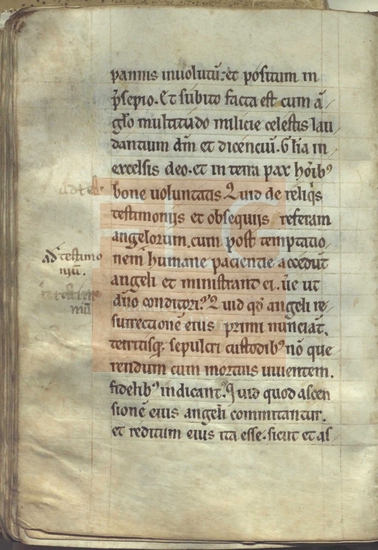 pannis inuolutū: et positum in
p̄sepio. Et subito facta est cum ā
glo multitudo milicie celestis lau
dantium dm̄ et dicenciū. Glīa in
excelsis deo. et in terra pax hōībꝰ
bone voluntatis Quid de reliq̄s
testimonijs et obsequijs referam
angelorum. cum post temptatio
nem humane pacientie accedūt
angeli et ministrant ei. ut
dn̄o conditori? Quid qd̄ angeli re
surrectionē eius primi nunciāt.
territisq; sepulcri custodibꝰ nō que
rendum cum mortuis uiuentem.
fidelibꝰ indicant? Quid quod ascen
sionē eius angeli commitantur.
et reditum eius ita esse. sicut et as
ad testimo
niū.